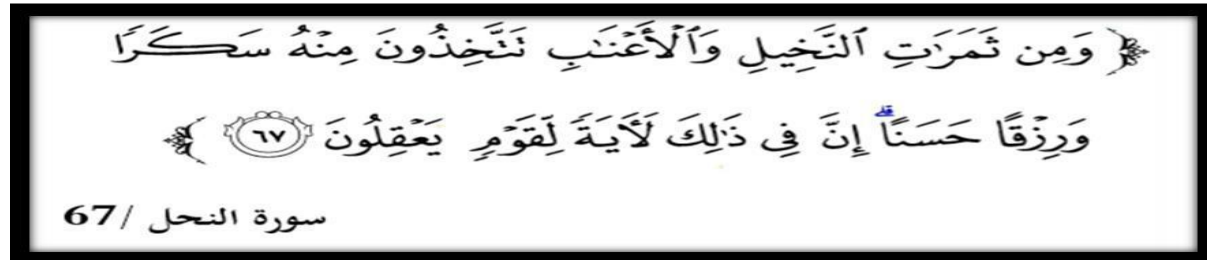 ﴿ وَمِن ثَمَرَٰتِ ٱلنَّخِيلِ وَٱلْأَعْنَٰبِ تَتَّخِذُونَ مِنْهُ سَكَرًا
وَرِزْقًا حَسَنًا ۗ إِنَّ فِى ذَٰلِكَ لَـَٔايَةً لِّقَوْمٍ يَعْقِلُونَ ٦٧ ﴾
سورة النحل /67